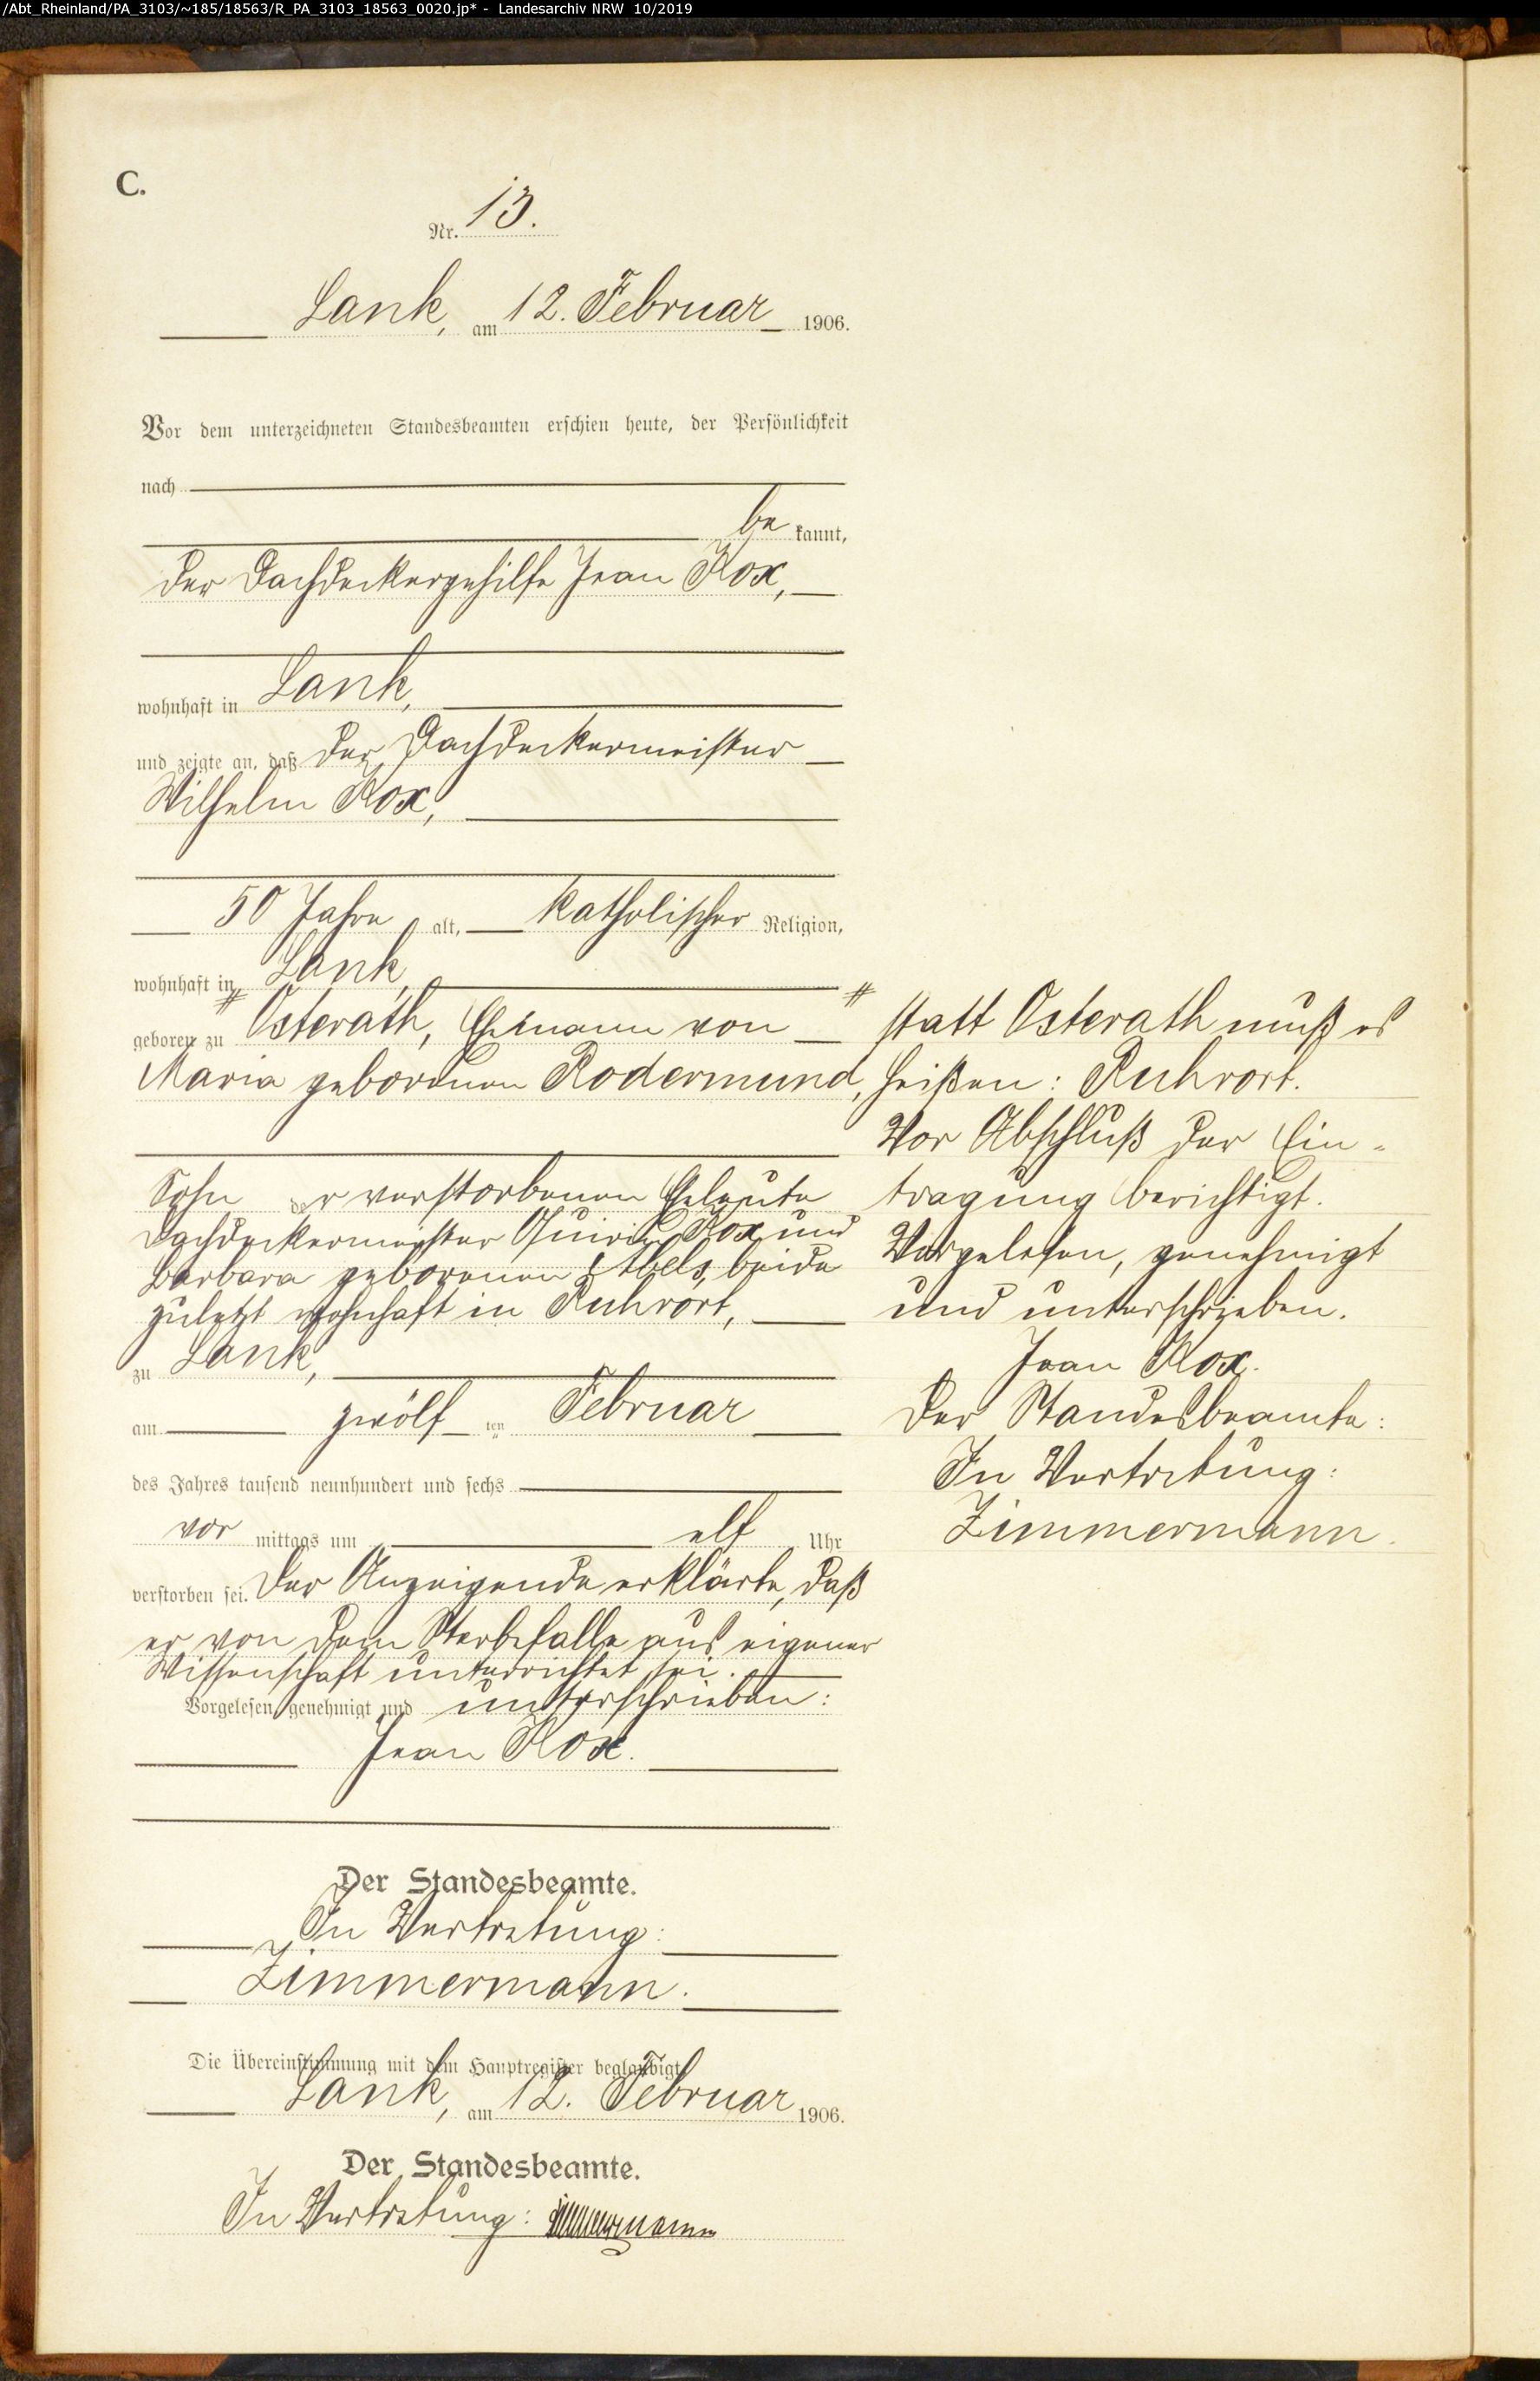 /Abt_Rheinland/PA_3103/~185/18563/R_PA_3103_18563_0020.jp* - Landesarchiv NRW 10/2019
C.
Nr. 13.
Lank, am 12. Februar 1906.
Vor dem unterzeichneten Standesbeamten erschien heute, der Persönlichkeit
nach
be kannt,
der Dachdeckergehilfe Jean Rox,
wohnhaft in Lank,
und zeigte an, daß der Dachdeckermeister
Wilhelm Rox,
50 Jahre alt, katholischer Religion,
wohnhaft in Lank,
geboren zu # Osterath, Ehemann von
Maria geborenen Rodermund,
Sohn der verstorbenen Eheleute
Dachdeckermeister Quirin Rox und
Barbara geborenen Abels, beide
zuletzt wohnhaft in Ruhrort,
zu Lank,
am zwölf ten Februar
des Jahres tausend neunhundert und sechs
vor mittags um elf Uhr
verstorben sei. Der Anzeigende erklärte, daß
er von dem Sterbefalle aus eigener
Wissenschaft unterrichtet sei.
Vorgelesen, genehmigt und unterschrieben:
Jean Rox.
Der Standesbeamte.
In Vertretung:
Zimmermann.
Die Übereinstimmung mit dem Hauptregister beglaubigt
Lank, am 12. Februar 1906.
Der Standesbeamte.
In Vertretung: Zimmermann
# statt Osterath muß es
heißen: Ruhrort.
Vor Abschluß der Ein-
tragung berichtigt.
Vorgelesen, genehmigt
und unterschrieben.
Jean Rox.
Der Standesbeamte:
In Vertretung:
Zimmermann.